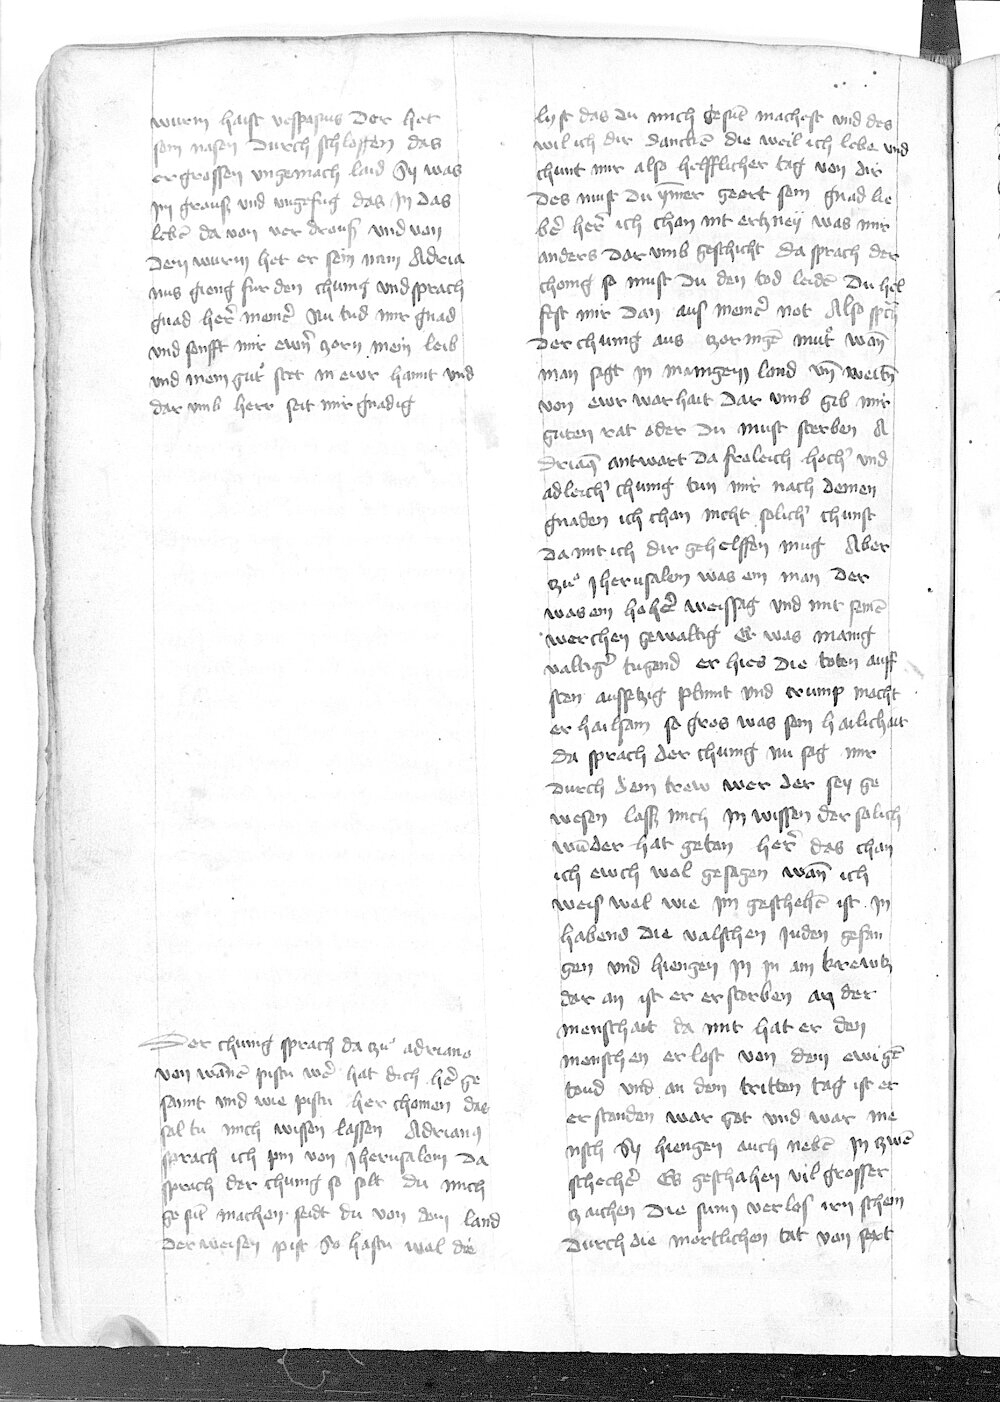 wurm haist vespasius Der het
sein nasen Durch schloffen das
er grossen ungemach laid Sy was
im grauß und ungefug das In das
lebn̄ da von ver drous und von
Dem wurm het er sein nam Adria
nus gieng fur den chunig und sprach
gnad her meinē Nu tud mir gnad
und senfft mir ewrn̄ zorn mein leib
und mein gut stet in ewr hannt und
dar umb herr seit mir gnadig
Der chunig sprach da tzu adriano
von wannē pistu wer hat dich her ge
sannt und wie pistu her chomen das
sal tu mich wissen lassen Adrianus
sprach ich pin von Jherusalem Da
sprach der chunig so solt du mich
ge sunt machen seidt du von dem land
Der weisen pist So hastu wol die
lyst das du mich gesunt machest und des
wil ich dir danckē die weil ich lebe und
chunt mir also helfflicher tag von dir
Des must Du ymmer geert sein gnad lie
ber her ich chan nit ertzney was mir
anders Dar umb geschicht da sprach der
chonig so must Du den tod leidē Du hel
fest mir Dan aus meinē not Also sprach
Der chunig aus zornigē mut wan̄
man sagt in manigem land vn̄ weitn̄
von ewr warhait Dar umb gib mir
guten rat oder Du must sterben A
drian⁹ antwort Da froleich hoch' und
adleich' chunig tun mir nach deinen
gnaden ich chan nicht solich' chunst
Da mit ich dir gehelffen mug Aber
tzu Jherusalem was ein man Der
was ein hoher weissag und mit seinē
werchen gewaltig Er was manig
valtigē tugend er hies die toten auff
sten aussetzig plint und crump macht
er hailsam so gros was sein hailichait
da sprach der chunig nu sag mir
Durch dein trew wer der sey ge
wesen lass mich In wissen der solich
wūder hat getan her das chan
ich ewch wol gesagen wan̄ ich
weis wol wie im geschehē ist In
habend die valschen Juden gefan
gen und hiengen In in am krewtz
dar an ist er erstorben an der
menschait da mit hat er den
menschen erlost von dem ewigē
toud und an dem dritten tag ist er
erstanden war got und war me
nsch Sy hiengen auch nebē In zwē
schecher Es geschahen vil grosser
tzaichen Die sunn verlos irn schein
Durch die mortlichen tat von sext